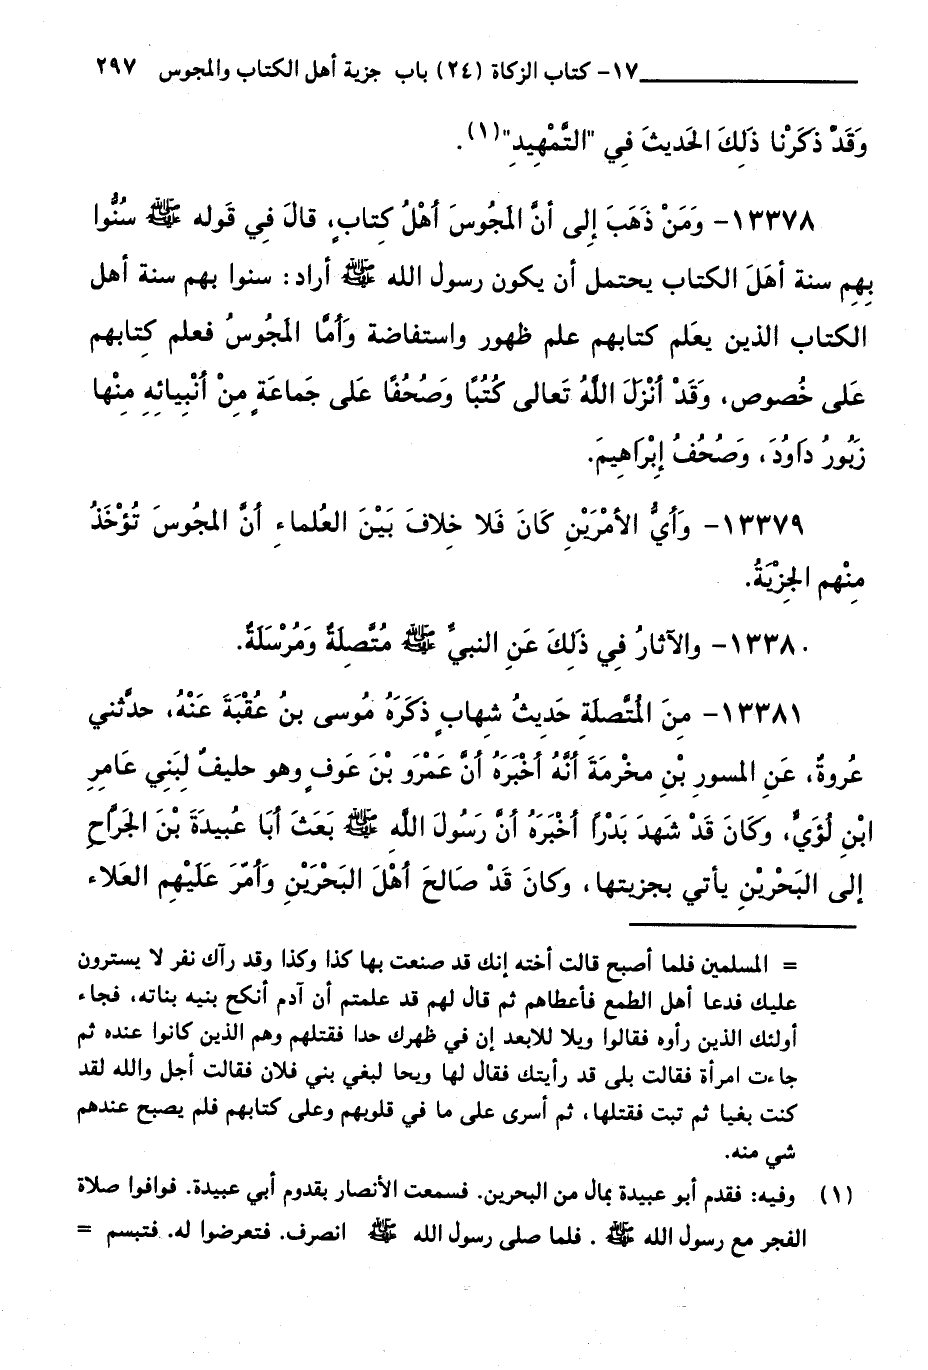 ١٧- كتاب الزكاة (٢٤) باب جزية أهل الكتاب والمجوس ٢٩٧
وَقَدْ ذكَرْنا ذَلِكَ الحَديثَ فِي "التَّمْهِيدِ"(١).
١٣٣٧٨- وَمَنْ ذَهَبَ إِلى أنَّ المَجُوسَ أهْلُ كِتابٍ، قالَ فِي قَوله ﷺ سُنُّوا
بِهِم سنة أهَلَ الكتاب يحتمل أن يكون رسول الله ﷺ أراد: سنوا بهم سنة أهل
الكتاب الذين يعَلم كتابهم علم ظهور واستفاضة وَأمَّا المَجُوسُ فعلم كِتابهم
عَلى خُصوص، وَقَدْ أنْزَلَ اللَّهُ تَعالى كُتُبًا وَصُحُفًا عَلى جَماعَةٍ مِنْ أنْبِيائِهِ مِنْها
زَبُورُ دَاوُدَ، وَصُحُفُ إِبْرَاهِيمَ.
١٣٣٧٩- وَأيُّ الأمْرَيْنِ كَانَ فَلا خِلافَ بَيْنَ العُلماءِ أنَّ المجُوسَ تُؤْخَذُ
مِنْهم الجِزْيَةُ.
١٣٣٨٠- والآثارُ فِي ذَلِكَ عَنِ النبيِّ ﷺ مُتَّصِلَةٌ وَمُرْسَلَةٌ.
١٣٣٨١- مِنَ المُتَّصلَةِ حَدِيثُ شهابٍ ذكَرَهُ مُوسى بنُ عُقْبَةَ عَنْهُ، حدَّثني
عُروةُ، عَنِ المسور بْنِ مخْرمَةَ أنَّهُ أخْبَرَهُ أنَّ عَمْرَو بْنَ عَوفٍ وهو حليفٌ لِبَنِي عَامِرِ
ابْنِ لُؤَيٍّ، وكَانَ قَدْ شَهِدَ بَدْرًا أخْبَرَهُ أنَّ رَسُولَ اللَّهِ ﷺ بَعَثَ أبَا عُبيدَةَ بْنَ الجَرَّاحِ
إلى البَحْرِيْنِ يأتي بجزيتها، وكَانَ قَدْ صَالحَ أهْلَ البَحْرَيْنِ وَأمَّرَ عَلَيْهِم العَلاء
= المسلمين فلما أصبح قالت أخته إنك قد صنعت بها كذا وكذا وقد رآك نفر لا يسترون
عليك فدعا أهل الطمع فأعطاهم ثم قال لهم قد علمتم أن آدم أنكح بنيه بناته، فجاء
أولئك الذين رأوه فقالوا ويلا للابعد إن في ظهرك حدا فقتلهم وهم الذين كانوا عنده ثم
جاءت امرأة فقالت بلى قد رأيتك فقال لها ويحا لبغي بني فلان فقالت أجل والله لقد
كنت بغيا ثم تبت فقتلها، ثم أسرى على ما في قلوبهم وعلى كتابهم فلم يصبح عندهم
شي منه.
(١) وفيه: فقدم أبو عبيدة بمال من البحرين. فسمعت الأنصار بقدوم أبي عبيدة. فوافوا صلاة
الفجر مع رسول الله ﷺ . فلما صلى رسول الله ﷺ انصرف. فتعرضوا له. فتبسم =